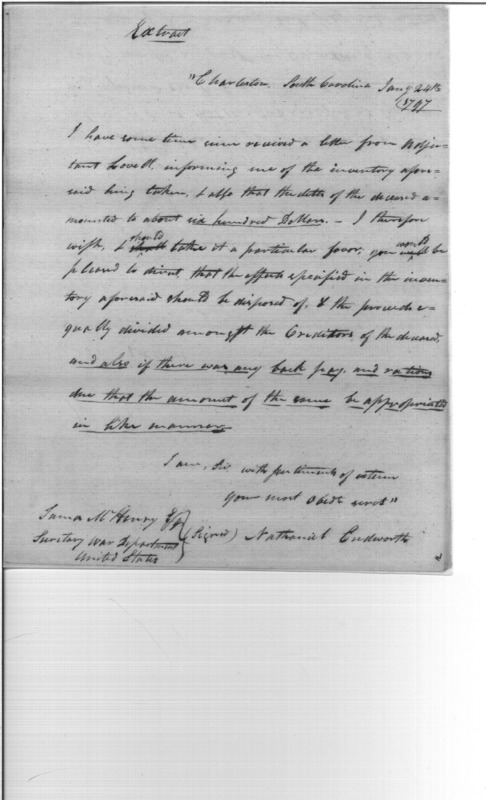 Extract
"Charleston, South Carolina Jany 24th
1797
I have some time since received a letter from Adju-
tant Lovell, informing me of the inventory afore-
said being taken, & also that the debts of the deceased a-
mounted to about six hundred Dollars. - I therefore
wish, & should take it a particular favor, you would be
pleased to direct, that the effects specified in the inven-
tory aforesaid should be disposed of, & the proceeds e-
qually divided amongst the Creditors of the deceased,
and also if there was any back pay, and rations
due that the amount of the same be appropriated
in like manner
I am, Sir with sentiments of esteem
your most Obedt servt"
James McHenry Esqr
Secretary War Department
United States
(Signed) Nathaniel Cudworth